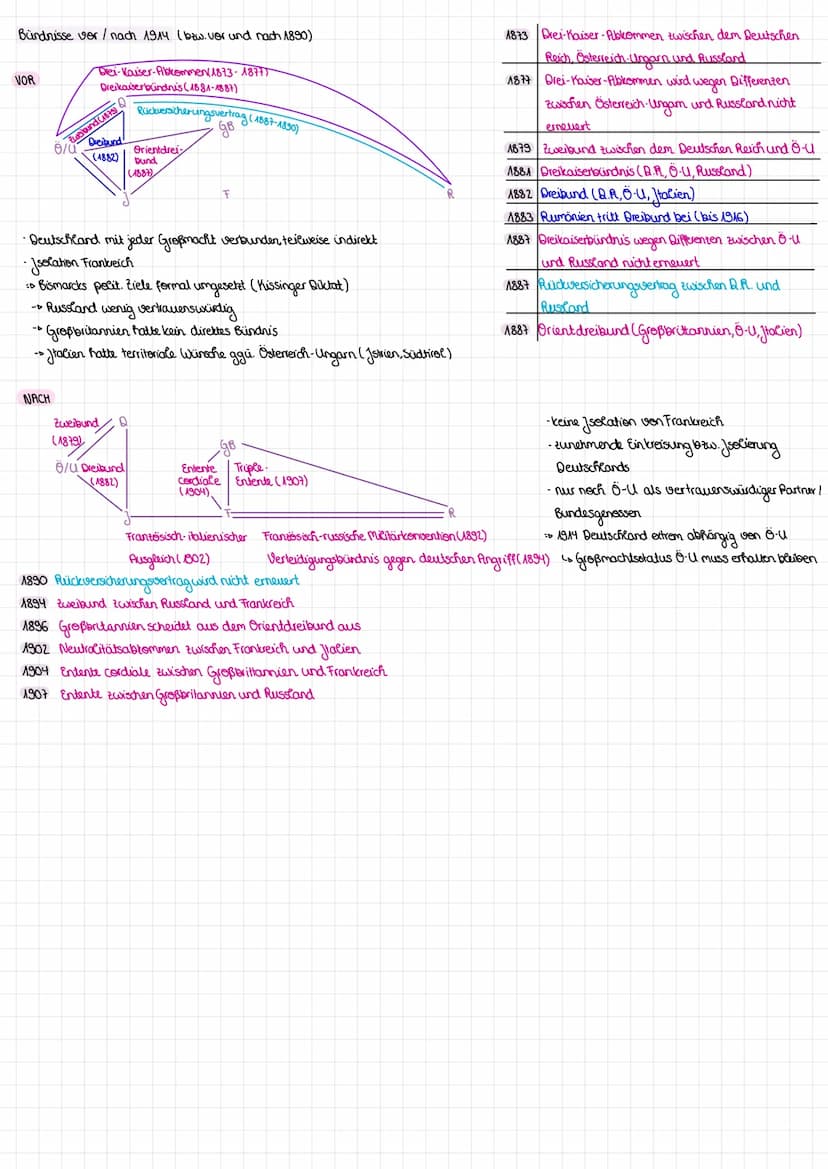 Bündnisse vor / nach 1914 (bzw. vor und nach 1890)
VOR
Drei-Kaiser-Abkommen (1873-1877)
Dreikaiserbündnis (1881-1887)
D
Rückversicherungsvertrag (1887-1890)
Zweibund (1879)
GB
Ö/U
Dreibund
(1882)
Orientdrei-
bund
(1887)
J
F
R
· Deutschland mit jeder Großmacht verbunden, teilweise indirekt
· Isolation Frankreich
⇒ Bismarcks polit. Ziele formal umgesetzt (Kissinger Diktat)
→ Russland wenig vertrauenswürdig
→ Großbritannien hatte kein direktes Bündnis
→ Italien hatte territoriale Wünsche ggü. Österreich-Ungarn (Istrien, Südtirol)
1873 Drei-Kaiser-Abkommen zwischen dem Deutschen
Reich, Österreich-Ungarn und Russland
1877 Drei-Kaiser-Abkommen wird wegen Differenzen
zwischen Österreich-Ungarn und Russland nicht
erneuert
1879 Zweibund zwischen dem Deutschen Reich und Ö-U
1881 Dreikaiserbündnis (D.R, Ö-U, Russland)
1882 Dreibund (D.R, Ö-U, Italien)
1883 Rumänien tritt Dreibund bei (bis 1916)
1887 Dreikaiserbündnis wegen Differenzen zwischen Ö-U
und Russland nicht erneuert
1887 Rückversicherungsvertrag zwischen D.R. und
Russland
1887 Orientdreibund (Großbritannien, Ö-U, Italien)
NACH
Zweibund
(1879)
D
GB
Ö/U
Dreibund
(1882)
Entente
cordiale
(1904)
Triple-
Entente (1907)
J
F
R
Französisch-italienischer
Ausgleich (1902)
Französisch-russische Militärkonvention (1892)
Verteidigungsbündnis gegen deutschen Angriff (1894)
- keine Isolation von Frankreich
- zunehmende Einkreisung bzw. Isolierung
Deutschlands
- nur noch Ö-U als vertrauenswürdiger Partner /
Bundesgenossen
⇒ 1914 Deutschland extrem abhängig von Ö-U
↳ Großmachtsstatus Ö-U muss erhalten bleiben
1890 Rückversicherungsvertrag wird nicht erneuert
1894 Zweibund zwischen Russland und Frankreich
1896 Großbritannien scheidet aus dem Orientdreibund aus
1902 Neutralitätsabkommen zwischen Frankreich und Italien
1904 Entente cordiale zwischen Großbrittannien und Frankreich
1907 Entente zwischen Großbritannien und Russland